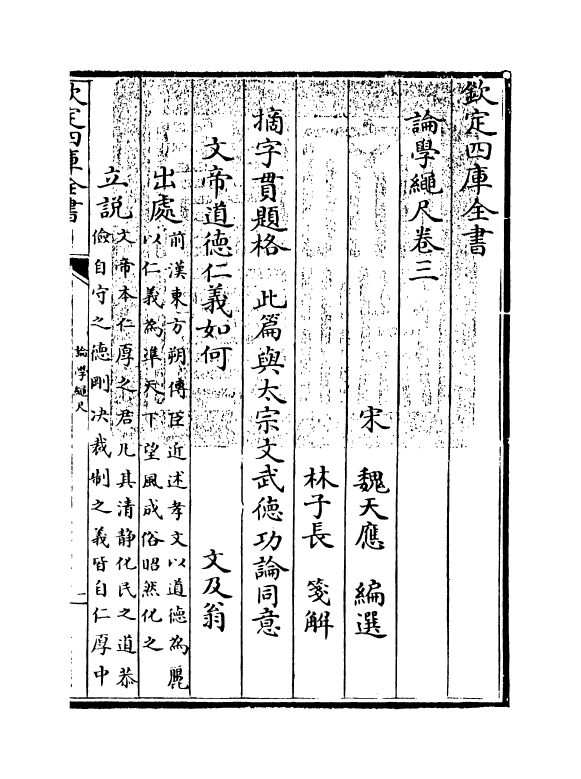 欽定四庫全書
論學繩尺卷三
宋　魏天應　編選
林子長　箋解
摘字貫題格　此篇與太宗文武德功論同意
文帝道德仁義如何　文及翁
出處
前漢東方朔傳臣近述孝文以道德為麗
以仁義為凖天下望風成俗昭然化之
立説
文帝本仁厚之君凡其清静化民之道恭
儉自守之德剛决裁制之義皆自仁厚中
欽定四庫全書
論學繩尺